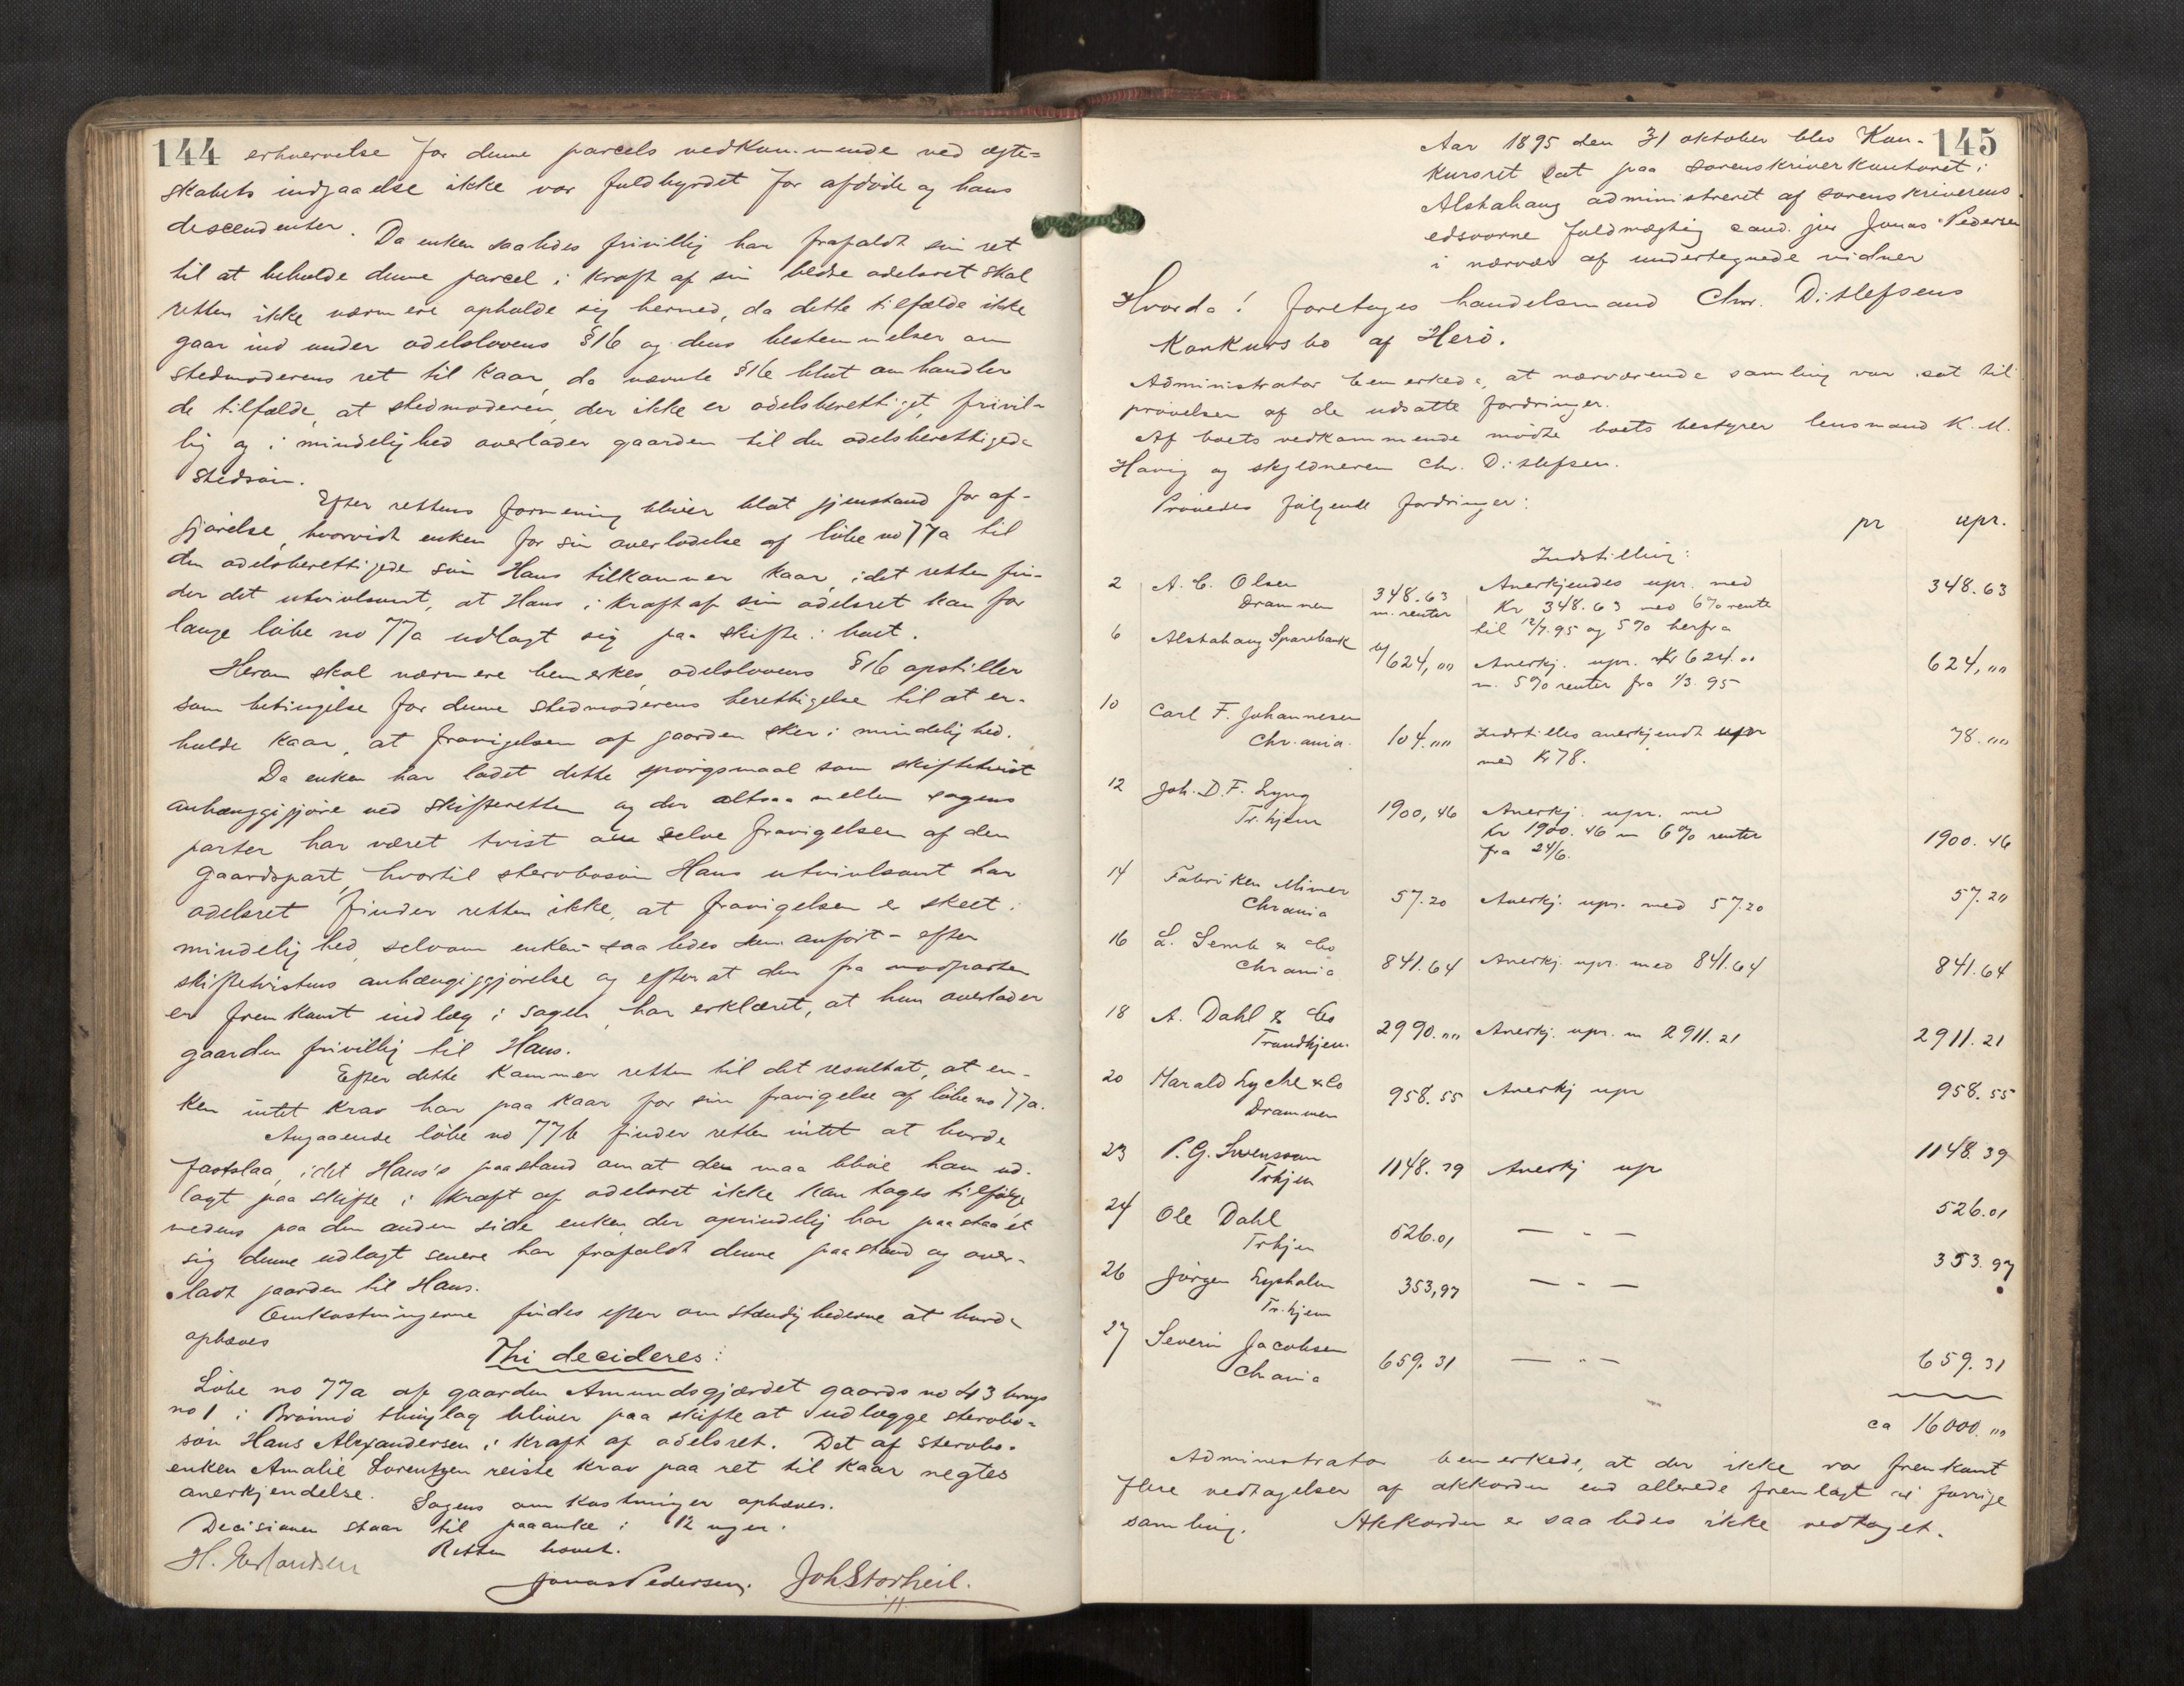 144
erhvervelse for denne parcels vedkommende ved ægte=
skabets indgaaelse ikke var fuldbyrdet for afdøde og hans
descendenter. Da enken saaledes frivillig har frafaldt sin ret
til at beholde denne parcel i kraft af sin bedre odelsret skal
retten ikke nærmere opholde sig herved, da dette tilfælde ikke
gaar ind under odelslovens §16 og dens bestemmelser om
stedmoderens ret til kaar, da nævnte §16 blot omhandler
de tilfælde, at stedmoderen, der ikke er odelsberettiget, frivil-
lig og i mindelighed overlader gaarden til den odelsberettigede
stedsøn.
Efter rettens formening bliver blot gjenstand for af-
gjørelse, hvorvidt enken for sin overladelse af løbe no 77a til
den odelsberettigede søn Hans tilkommer kaar, idet retten fin-
der det utvivlsomt, at Hans i kraft af sin odelsret kan for
lange løbe no 77a udlagt sig paa skifte i boet.
Herom skal nærmere bemerkes, odelslovens §16 opstiller
som betingelse for denne stedmoderens berettigelse til at er-
holde kaar, at fravigelsen af gaarden sker i mindelighed.
Da enken har ladet dette spørgsmaal som skiftetvist
anhænggiggjøre ved skifteretten og der altsaa mellem sagens
parter har været tvist om selve fravigelsen af den
gaardspart, hvortil stervbosøn Hans utvivlsomt har
odelsret finder retten ikke, at fravigelsen er skeet i
mindelighed, selvom enken - saaledes som anført - efter
skiftetvistens anhængiggjørelse og efter at der fra modparten
er fremkomt indlæg i sagen, har erklæret, at hun overlader
gaarden frivillig til Hans.
Efter dette kommer retten til det resultat, at en-
ken intet krav har paa kaar for sin fravigelse af løbe no 77a.
Angaaende løbe no 77b finder retten intet at burde
fastslaa, idet Hans's paastand om at den maa blive ham ud-
lagt paa skifte i kraft af odelsret ikke kan tages tilfølge
medens paa den anden side enken, der oprindelig har paastaaet
sig denne udlagt senere har frafaldt denne paastand og over-
ladt gaarden til Hans.
Omkostningerne findes efter omstændighederne at burde
ophæves
Thi decideres:
Løbe no 77a af gaarden Amundsgjærdet gaards no 43 brugs
no 1 i Brønnø thinglag bliver paa skifte at udlægge stervbo-
søn Hans Alexandersen i kraft af odelsret. Det af stervbo-
enken Amalie Lorentzen reiste krav paa ret til kaar negtes
anerkjendelse. Sagens omkostninger ophæves.
Decisionen staar til paaanke i 12 uger.
Retten hævet.
H. Erlandsen
Jonas Pedersen. Joh Storheil.
145
Aar 1895 den 31 oktober blev Kon-
kursret sat paa sorenskriverkontoret i
Alstahaug administreret af sorenskriverens
edsvorne fuldmægtig cand. jur Jonas Pedersen
i nærvær af undertegnede vidner
Hvorda! foretoges handelsmand Chr. Ditlefsens
Konkursbo af Herø.
Administrator bemerkede, at nærværende samling var sat til
prøvelsen af de udsatte fordringer.
Af boets vedkommende mødte boets bestyrer lensmand K. M.
Havig og skyldneren Chr. Ditlefsen.
Prøvedes følgende fordringer:
pr upr.
Indstilling:
2 A. C. Olsen 348.63 Anerkjendes upr. med 348.63
Drammen m. renter Kr 348.63 med 6% rente
til 12/7.95 og 5% herfra
6 Alstahaug Sparebank 624,00 Anerkj. upr. Kr 624.00 624,00
m. 5% renter fra 1/3.95
10 Carl F. Johannesen
Chr.ania. 104.00 Indstilles anerkjendt upr 78.00
med Kr 78.
12 Joh. D. F. Lyng
Tr.hjem 1900,46 Anerkj. upr. med
Kr 1900.46 m 6% renter 1900.46
fra 24/6.
14 Fabriken Mimer
Chrania 57.20 Anerkj. upr. med 57.20 57.20
16 L. Semb & Co
Chrania 841.64 Anerkj. upr. med 841.64 841.64
18 A. Dahl & Co
Trondhjem. 2990.00 Anerkj. upr. m 2911.21 2911.21
20 Harald Lyche & Co 958.55 Anerkj upr 958.55
Drammen
23 P. G. Svensson 1148.39 Anerkj upr 1148.39
Trhjem
24 Ole Dahl 526.01 — " — 526.01
Trhjem
26 Jørgen Lysholm 353,97 — " — 353.97
Tr.hjem
27 Severin Jacobsen 659.31 — " — 659.31
Chrania
ca 16000.00
Administrator bemerkede, at der ikke var fremkomt
flere vedtagelser af akkorden end allerede fremlagt i forrige
samling. Akkorden er saaledes ikke vedtaget.